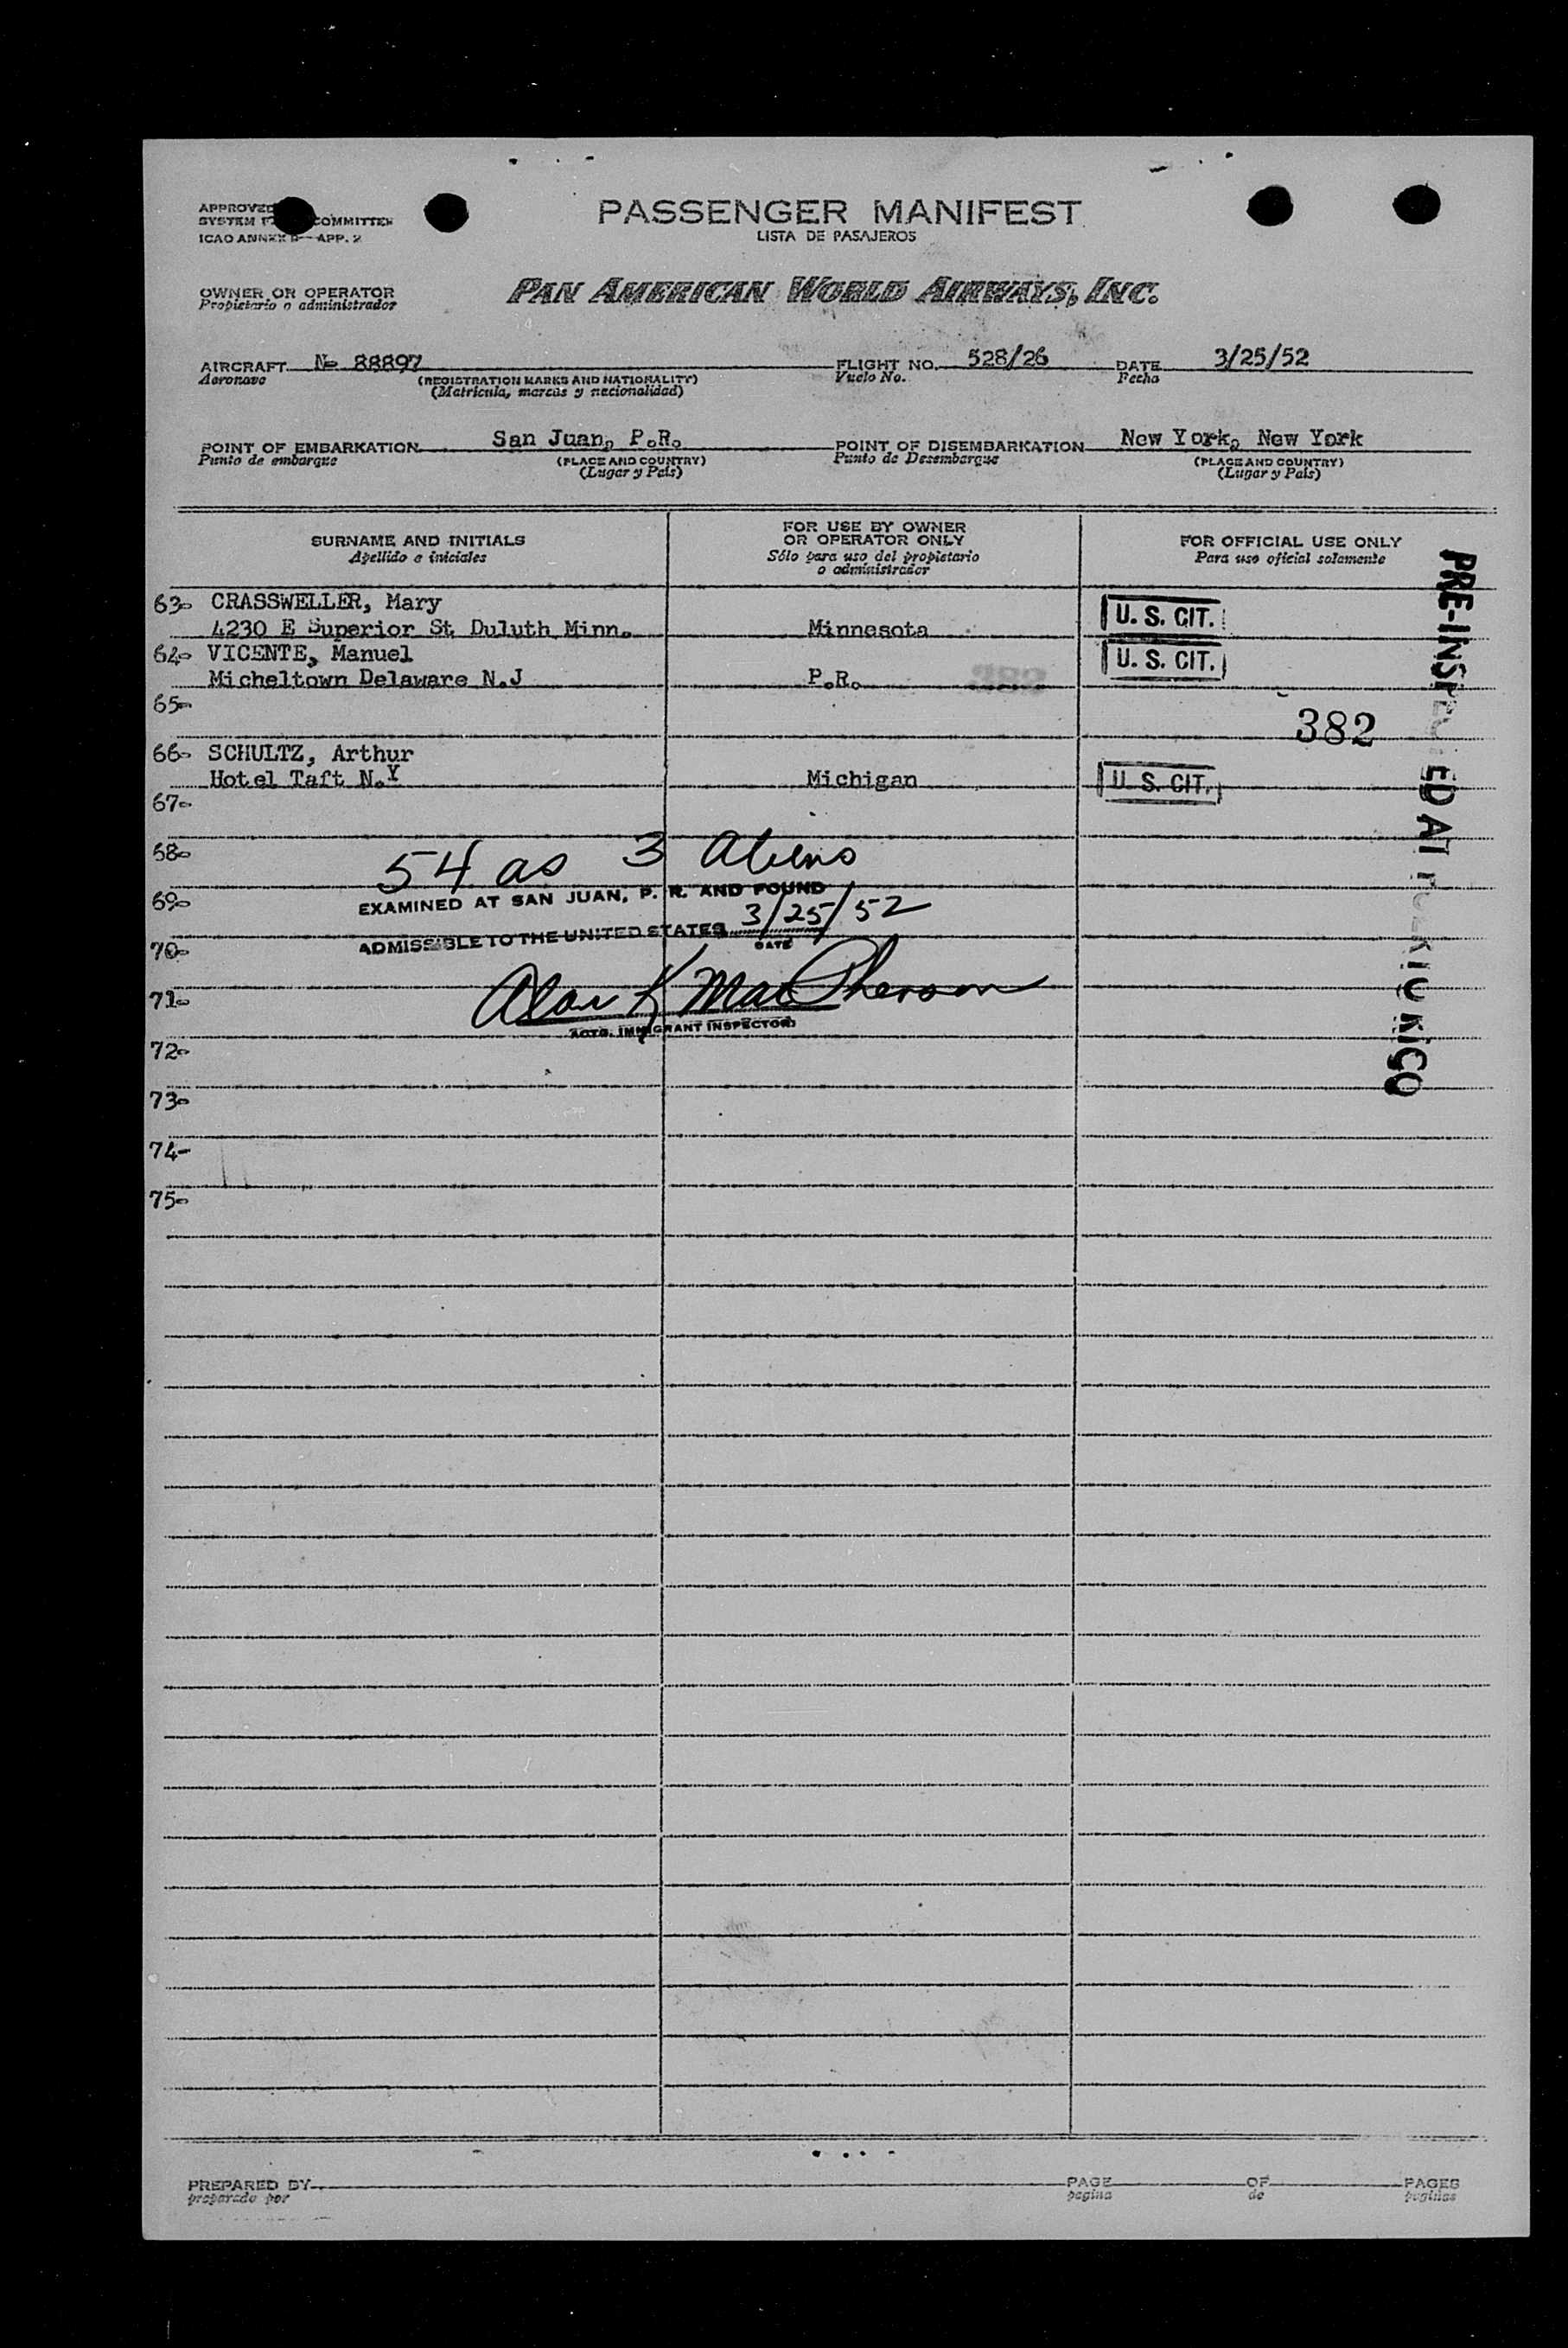 APPROVED COMMITTEE
SYSTEM
ICAO ANNEX 9— APP. 2
PASSENGER MANIFEST
LISTA DE PASAJEROS
OWNER OR OPERATOR
Propietario o administrador
PAN AMERICAN WORLD AIRWAYS, INC.
AIRCRAFT No 88897 FLIGHT NO. 528/26 DATE 3/25/52
Aeronave (REGISTRATION MARKS AND NATIONALITY) Vuelo No. Fecha
(Matricula, marcas y nacionalidad)
POINT OF EMBARKATION San Juan, P.R. POINT OF DISEMBARKATION New York, New York
Punto de embarque (PLACE AND COUNTRY) Punto de Desembarque (PLACE AND COUNTRY)
(Lugar y País) (Lugar y País)
SURNAME AND INITIALS FOR USE BY OWNER OR OPERATOR ONLY FOR OFFICIAL USE ONLY
Apellido e iniciales Sólo para uso del propietario o administrador Para uso oficial solamente
63- CRASSWELLER, Mary U. S. CIT.
4230 E Superior St Duluth Minn. Minnesota
64- VICENTE, Manuel U. S. CIT.
Micheltown Delaware N.J P.R. 382
65-
382
66- SCHULTZ, Arthur
Hotel Taft N.Y Michigan U. S. CIT.
67-
68-
54 as 3 aliens
69-
EXAMINED AT SAN JUAN, P. R. AND FOUND
ADMISSIBLE TO THE UNITED STATES 3/25/52
DATE
70-
71-
Alan K MacPherson
ACTG. IMMIGRANT INSPECTOR
72-
73-
74-
75-
PRE-INSPECTED AT PUERTO RICO
PREPARED BY PAGE OF PAGES
preparado por pagina de paginas